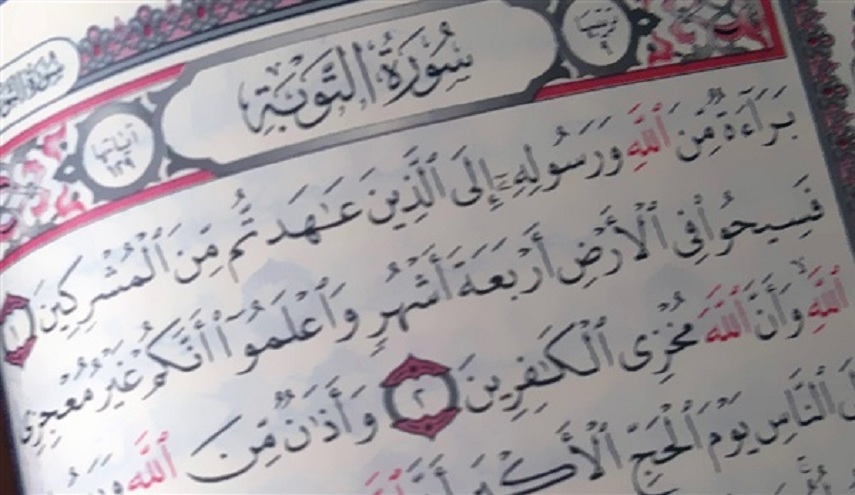 سُورَةُ التَّوْبَةِ
ترتيبها ٩
آياتها ١٢٩
بَرَآءَةٌ مِّنَ ٱللَّهِ وَرَسُولِهِۦٓ إِلَى ٱلَّذِينَ عَٰهَدتُّم مِّنَ ٱلْمُشْرِكِينَ ١
فَسِيحُوا۟ فِى ٱلْأَرْضِ أَرْبَعَةَ أَشْهُرٍ وَٱعْلَمُوٓا۟ أَنَّكُمْ غَيْرُ مُعْجِزِى
ٱللَّهِ ۙ وَأَنَّ ٱللَّهَ مُخْزِى ٱلْكَٰفِرِينَ ٢ وَأَذَٰنٌ مِّنَ ٱللَّهِ
ٱلنَّاسِ يَوْمَ ٱلْحَجِّ ٱلْأَكْبَرِ أَنَّ